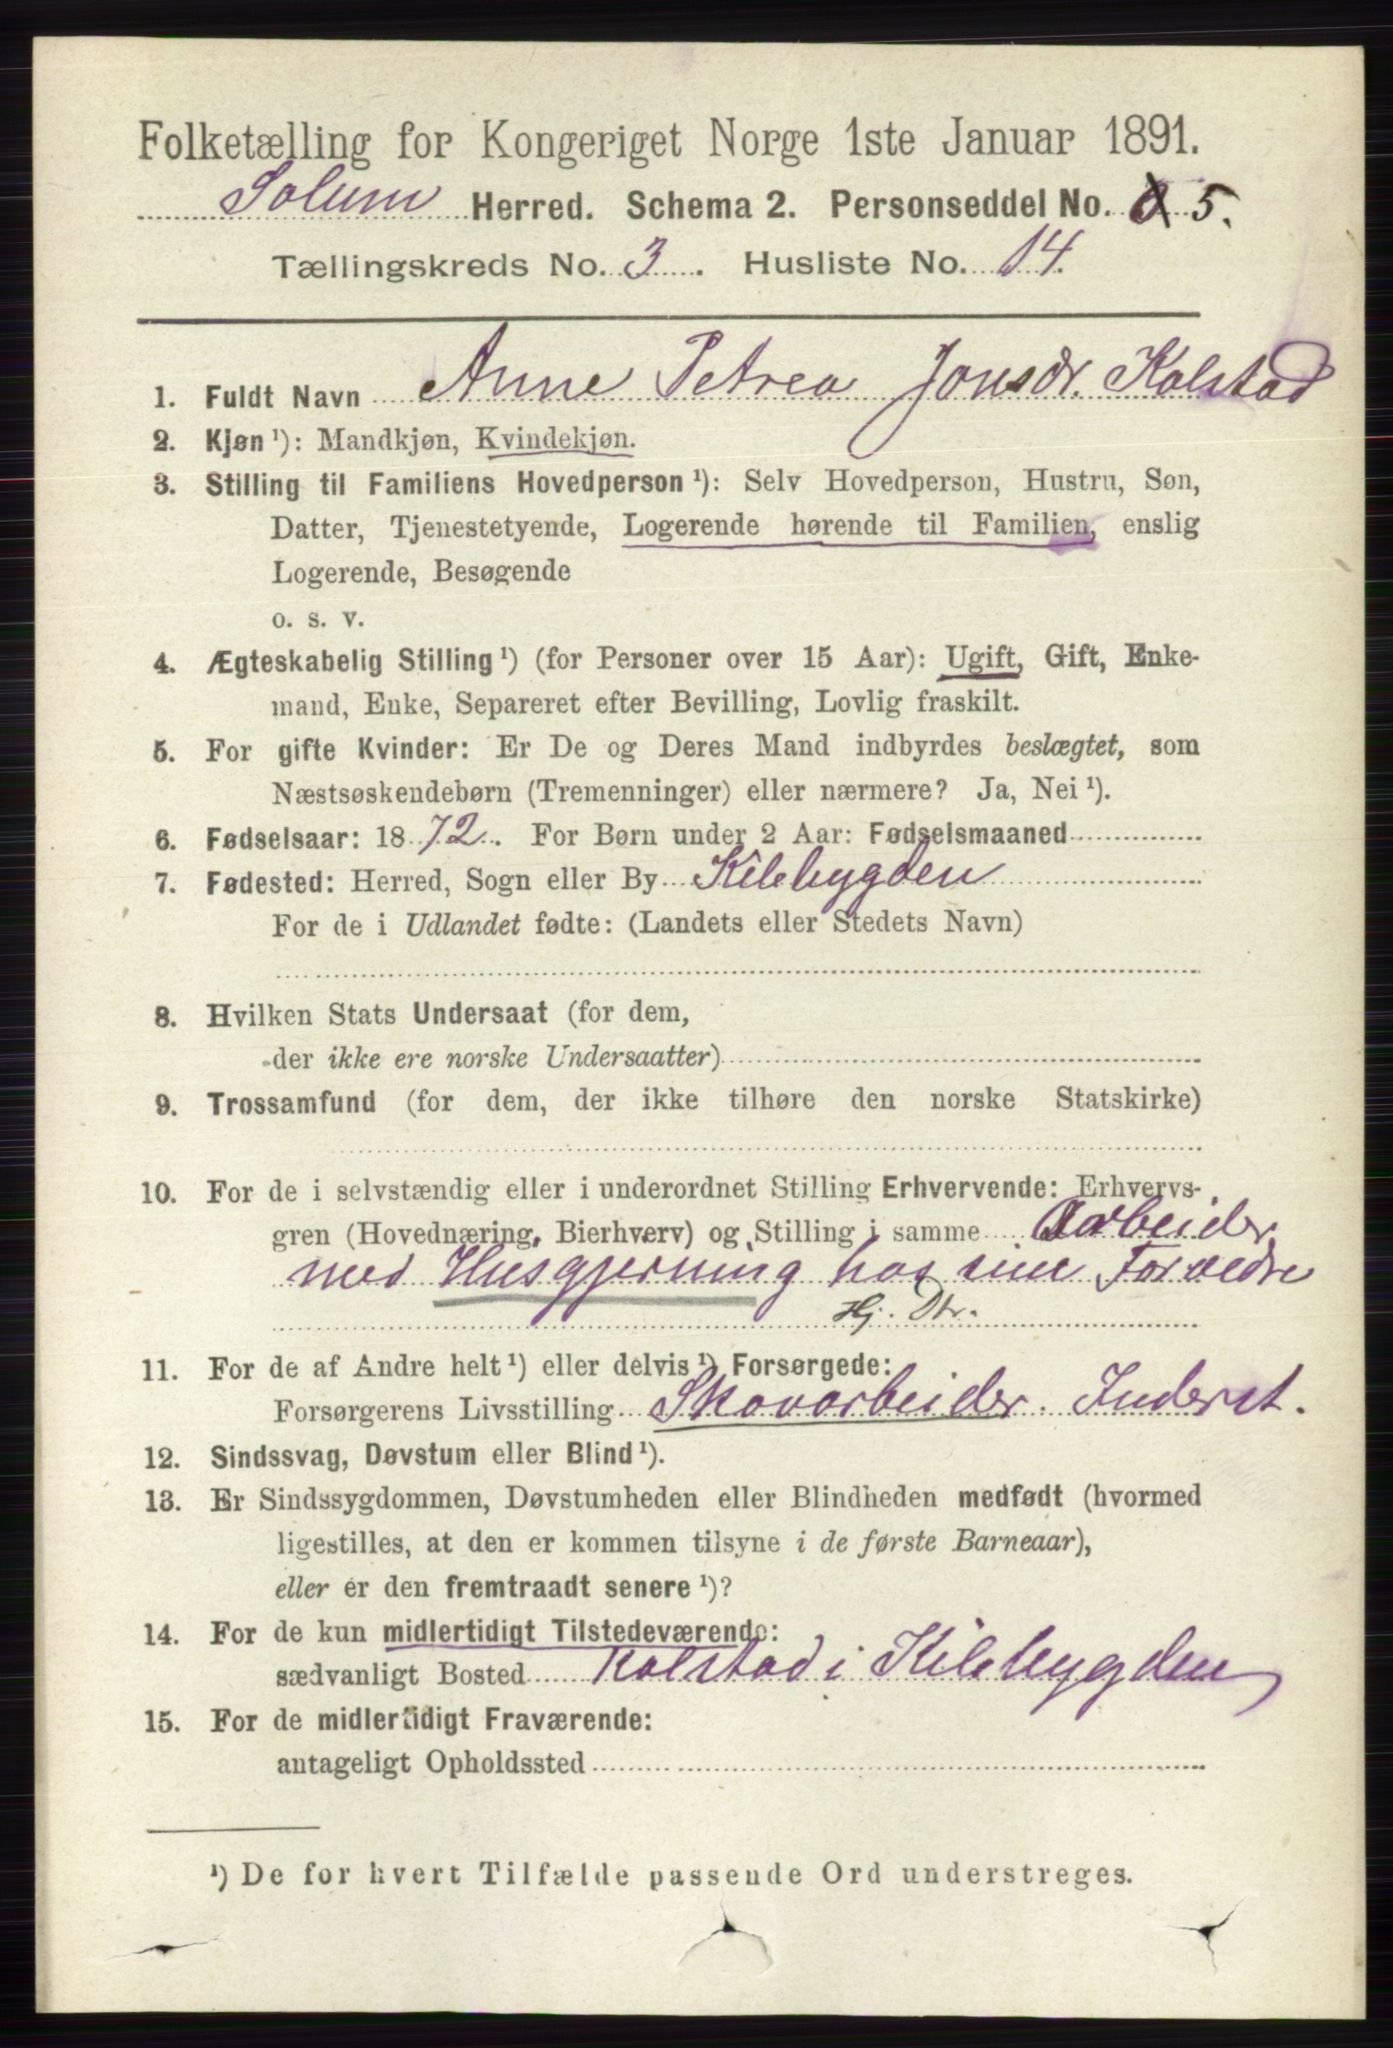 Folketælling for Kongeriget Norge 1ste Januar 1891.
Solum Herred. Schema 2. Personseddel No. 5.
Tællingskreds No. 3. Husliste No. 14.
1. Fuldt Navn Anne Petrea Jonsdr. Kolstad
2. Kjøn ¹): Mandkjøn, Kvindekjøn.
3. Stilling til Familiens Hovedperson ¹): Selv Hovedperson, Hustru, Søn,
Datter, Tjenestetyende, Logerende hørende til Familien, enslig
Logerende, Besøgende
o. s. v.
4. Ægteskabelig Stilling ¹) (for Personer over 15 Aar): Ugift, Gift, Enke-
mand, Enke, Separeret efter Bevilling, Lovlig fraskilt.
5. For gifte Kvinder: Er De og Deres Mand indbyrdes beslægtet, som
Næstsøskendebørn (Tremenninger) eller nærmere? Ja, Nei ¹).
6. Fødselsaar: 1872. For Børn under 2 Aar: Fødselsmaaned
7. Fødested: Herred, Sogn eller By Kilebygden
For de i Udlandet fødte: (Landets eller Stedets Navn)
8. Hvilken Stats Undersaat (for dem,
der ikke ere norske Undersaatter)
9. Trossamfund (for dem, der ikke tilhøre den norske Statskirke)
10. For de i selvstændig eller i underordnet Stilling Erhvervende: Erhvervs-
gren (Hovednæring, Bierhverv) og Stilling i samme Arbeider
med Husgjerning hos sine Forældre
Hj. Dtr.
11. For de af Andre helt ¹) eller delvis ¹) Forsørgede:
Forsørgerens Livsstilling Skovarbeider. Inderst.
12. Sindssvag, Døvstum eller Blind ¹).
13. Er Sindssygdommen, Døvstumheden eller Blindheden medfødt (hvormed
ligestilles, at den er kommen tilsyne i de første Barneaar),
eller er den fremtraadt senere ¹)?
14. For de kun midlertidigt Tilstedeværende:
sædvanligt Bosted Kolstad i Kilebygden
15. For de midlertidigt Fraværende:
antageligt Opholdssted
¹) De for hvert Tilfælde passende Ord understreges.